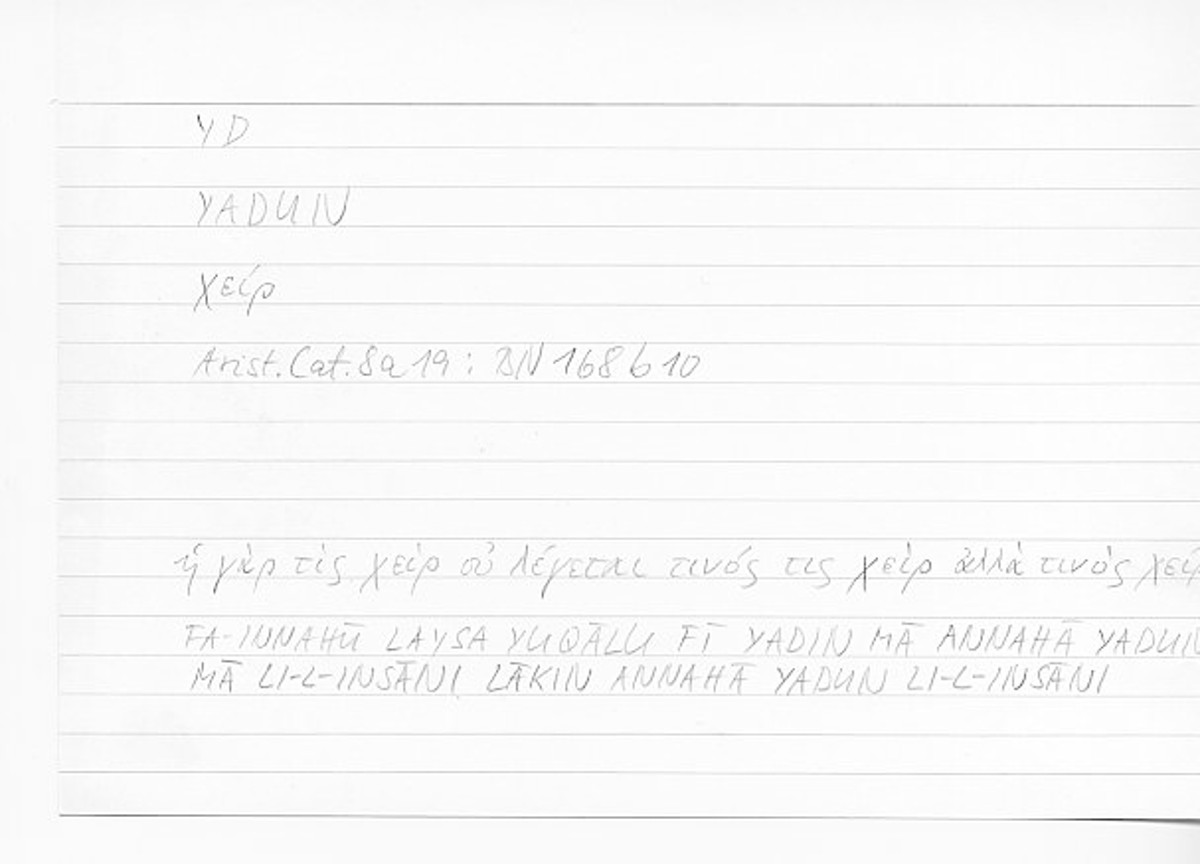 YD
YADUN
χείρ
Arist. Cat. 8a19 : BN 168b10
ἡ γὰρ τὶς χεὶρ οὐ λέγεται τινός τις χεὶρ ἀλλὰ τινὸς χείρ
FA-INNAHŪ LAYSA YUQĀLU FĪ YADIN MĀ ANNAHĀ YADUN
MĀ LI-L-INSĀNI LĀKIN ANNAHĀ YADUN LI-L-INSĀNI